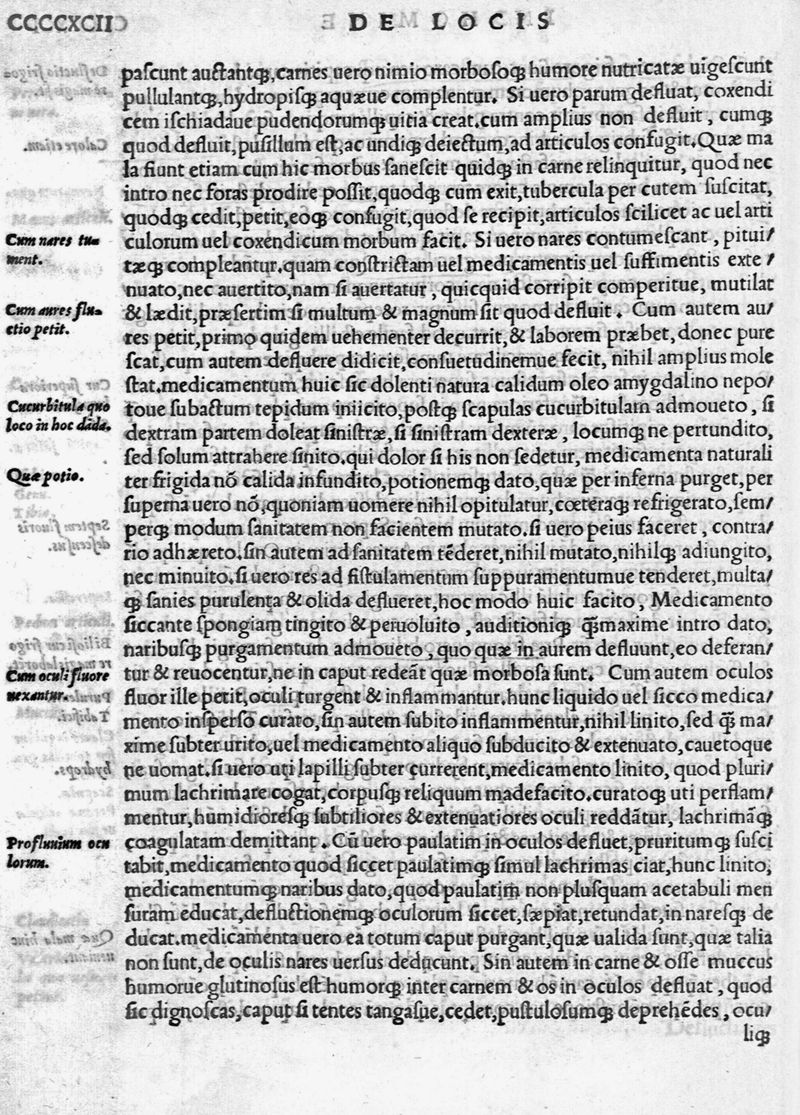 CCCCXCII DE LOCIS
paſcunt auctantq́ꝫ, carnes uero nimio morboſoq́ꝫ humore nutricatæ uigeſcunt
pullulantq́ꝫ, hydropiſq́ꝫ aquæue complentur. Si uero parum defluat, coxendi
cem iſchiadaue pudendorumq́ꝫ uitia creat. cum amplius non defluit, cumq́ꝫ
quod defluit, puſillum eſt, ac undiq́ꝫ deiectum, ad articulos confugit. Quæ ma
la fiunt etiam cum hic morbus ſaneſcit quidq́ꝫ in carne relinquitur, quod nec
intro nec foras prodire poſſit, quodq́ꝫ cum exit, tubercula per cutem ſuſcitat,
quodq́ꝫ cedit, petit, eoq́ꝫ confugit, quod ſe recipit, articulos ſcilicet ac uel arti
Cum nares tu=
ment.
culorum uel coxendicum morbum facit. Si uero nares contumeſcant, pitui/
tæq́ꝫ compleantur. quam conſtrictam uel medicamentis uel ſuffimentis exte/
nuato, nec auertito, nam ſi auertatur, quicquid corripit comperitue, mutilat
Cum aures flu=
ctio petit.
& lædit, præſertim ſi multum & magnum ſit quod defluit. Cum autem au/
res petit, primo quidem uehementer decurrit, & laborem præbet, donec pure
ſcat, cum autem defluere didicit, conſuetudinemue fecit, nihil amplius mole
ſtat. medicamentum huic ſic dolenti natura calidum oleo amygdalino nepo/
Cucurbitula quo
loco in hoc dāda.
toue ſubactum tepidum iniicito, poſtq́ꝫ ſcapulas cucurbitulam admoueto, ſi
dextram partem doleat ſiniſtræ, ſi ſiniſtram dexteræ, locumq́ꝫ ne pertundito,
ſed ſolum attrahere ſinito. qui dolor ſi his non ſedetur, medicamenta naturali
Quæ potio.
ter frigida nõ calida infundito, potionemq́ꝫ dato, quæ per inferna purget, per
ſuperna uero nõ, quoniam uomere nihil opitulatur, cœteraq́ꝫ refrigerato, ſem/
perq́ꝫ modum ſanitatem non facientem mutato. ſi uero peius faceret, contra/
rio adhæreto. ſin autem ad ſanitatem tẽderet, nihil mutato, nihilq́ꝫ adiungito,
nec minuito. ſi uero res ad fiſtulamentum ſuppuramentumue tenderet, multa/
q́ꝫ ſanies purulenta & olida deflueret, hoc modo huic facito, Medicamento
ſiccante ſpongiam tingito & peruoluito, auditioniq́ꝫ q̃ꝫmaxime intro dato,
naribuſq́ꝫ purgamentum admoueto, quo quæ in aurem defluunt, eo deferan/
Cum oculi fluore
uexantur.
tur & reuocentur, ne in caput redeãt quæ morboſa ſunt. Cum autem oculos
fluor ille petit, oculi turgent & inflammantur. hunc liquido uel ſicco medica/
mento inſperſo curato, ſin autem ſubito inflammentur, nihil linito, ſed q̃ꝫ ma/
xime ſubter urito, uel medicamento aliquo ſubducito & extenuato, cauetoque
ne uomat. ſi uero uti lapilli ſubter currerent, medicamento linito, quod pluri/
mum lachrimare cogat, corpuſq́ꝫ reliquum madefacito. curatoq́ꝫ uti perflam/
mentur, humidioreſq́ꝫ ſubtiliores & extenuatiores oculi reddãtur, lachrimãq́ꝫ
Profluuium ocu
lorum.
coagulatam demittant. Cũ uero paulatim in oculos defluet, pruritumq́ꝫ ſuſci
tabit, medicamento quod ſiccet paulatimq́ꝫ ſimul lachrimas ciat, hunc linito,
medicamentumq́ꝫ naribus dato, quod paulatim non pluſquam acetabuli men
ſuram educat, defluctionemq́ꝫ oculorum ſiccet, ſæpiat, retundat, in nareſq́ꝫ de
ducat. medicamenta uero ea totum caput purgant, quæ ualida ſunt, quæ talia
non ſunt, de oculis nares uerſus deducunt. Sin autem in carne & oſſe muccus
humorue glutinoſus eſt humorq́ꝫ inter carnem & os in oculos defluat, quod
ſic dignoſcas, caput ſi tentes tangaſue, cedet, puſtuloſumq́ꝫ deprehẽdes, ocu/
liq́ꝫ